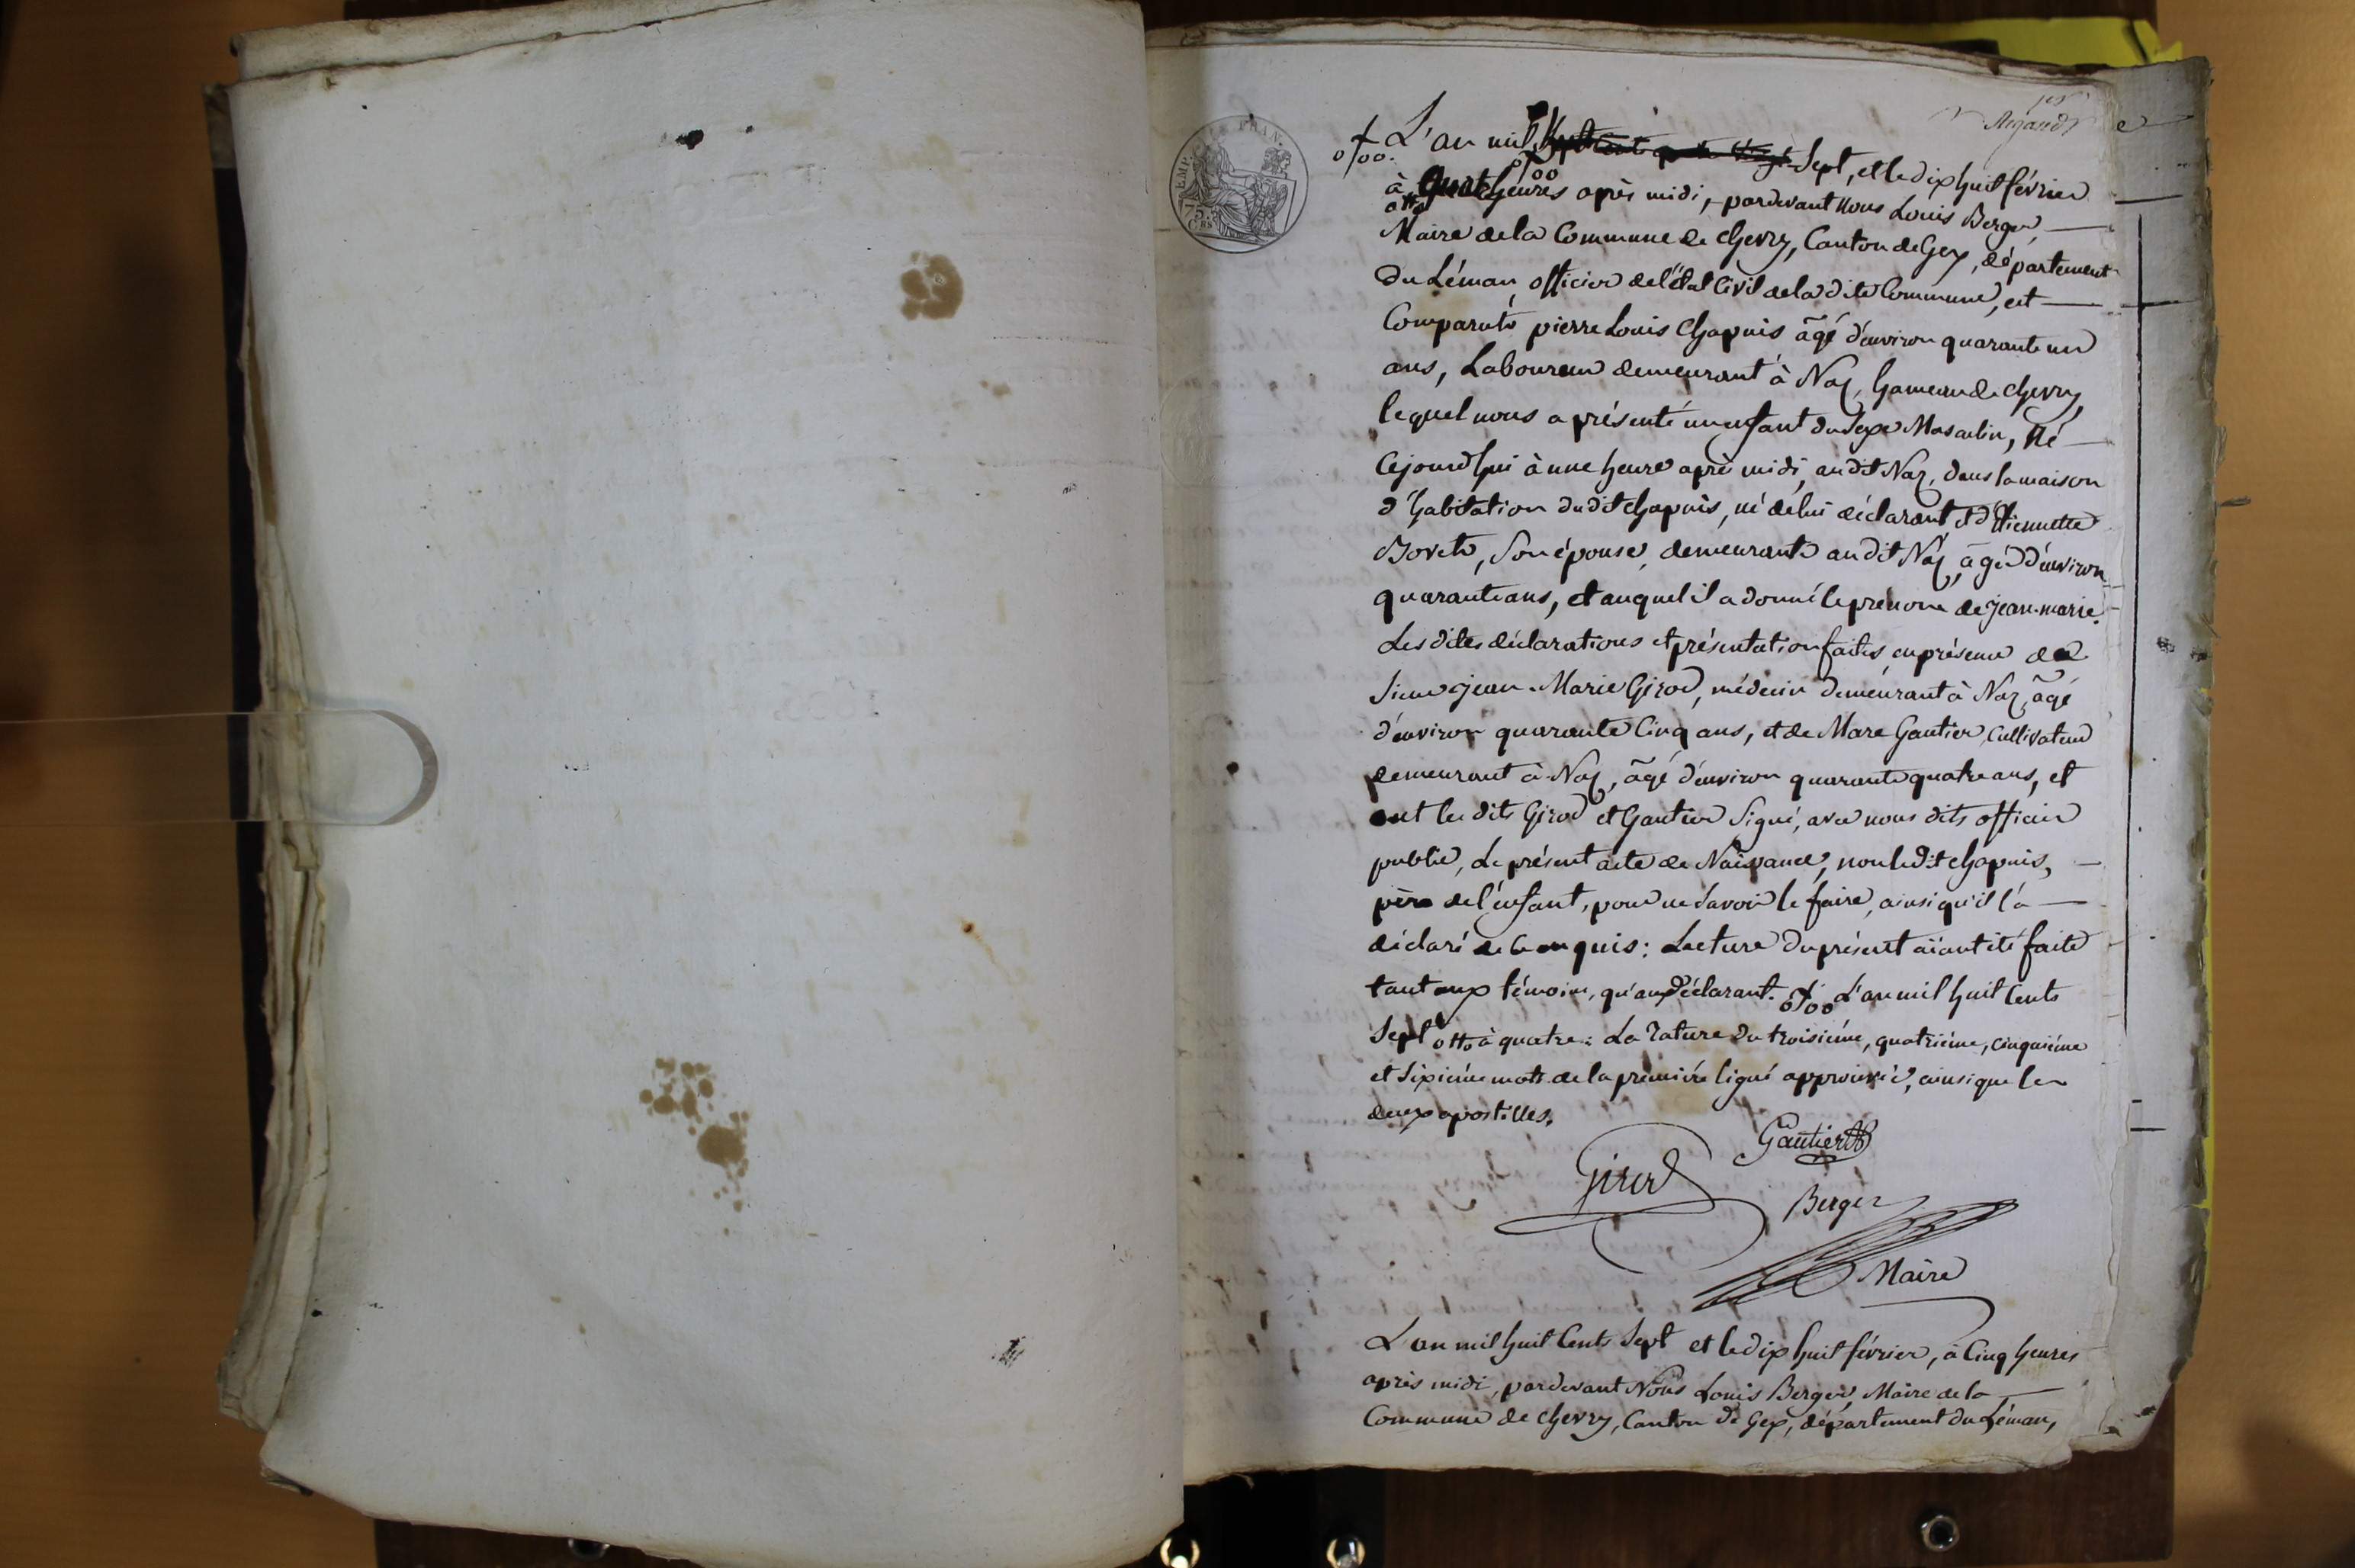 Argand
L'an mil Sept, et le dix huit février
à quatre heures après midi, pardevant Nous Louis Berger,
Maire de la Commune de chevry, Canton de Gex, département
du Léman, officier de l'état Civil de la dite Commune, est
Comparuts pierre Louis Chapuis âgé d'environ quarante un
ans, Laboureur demeurant à Naz, hameau de chevry,
lequel nous a présenté un enfant du Sexe Masculin, Né
Cejourd'hui à une heure après midi, audit Naz, dans la maison
d'habitation dudit Chapuis, né de lui déclarant et d'Etiennette
, Son épouse, demeurante audit Naz, âgée d'environ
quarante ans, et auquel il a donné le prenom de jean-marie.
Les dites déclarations et présentation faites, en présence de
Sieur jean-Marie Girod, médecin demeurant à Naz, âgé
d'environ quarante Cinq ans, et de Marc Gautier, Cultivateur
demeurant à Naz, âgé d'environ quarante quatre ans, et
ont les dits Girod et Gautier Signé, avec nous dits officier
public, Le présent acte de Naissance, non ledit Chapuis,
père de l'enfant, pour ne Savoir le faire, ainsi qu'il l'a
déclaré de ce enquis: Lecture du présent aïant été faite
tant aux témoins, qu'au déclarant. L'an mil huit Cents
Sept à quatre: La rature du troisième, quatrième, cinquième
et Sixième mots de la première ligne approuvée, ainsi que les
deux apostilles.
Gautier
Girod
Berger
Maire
L'an mil huit Cents Sept et le dix huit février, à Cinq heures
après midi, pardevant Nous Louis Berger, Maire de la
Commune de chevry, Canton de Gex, département du Léman,